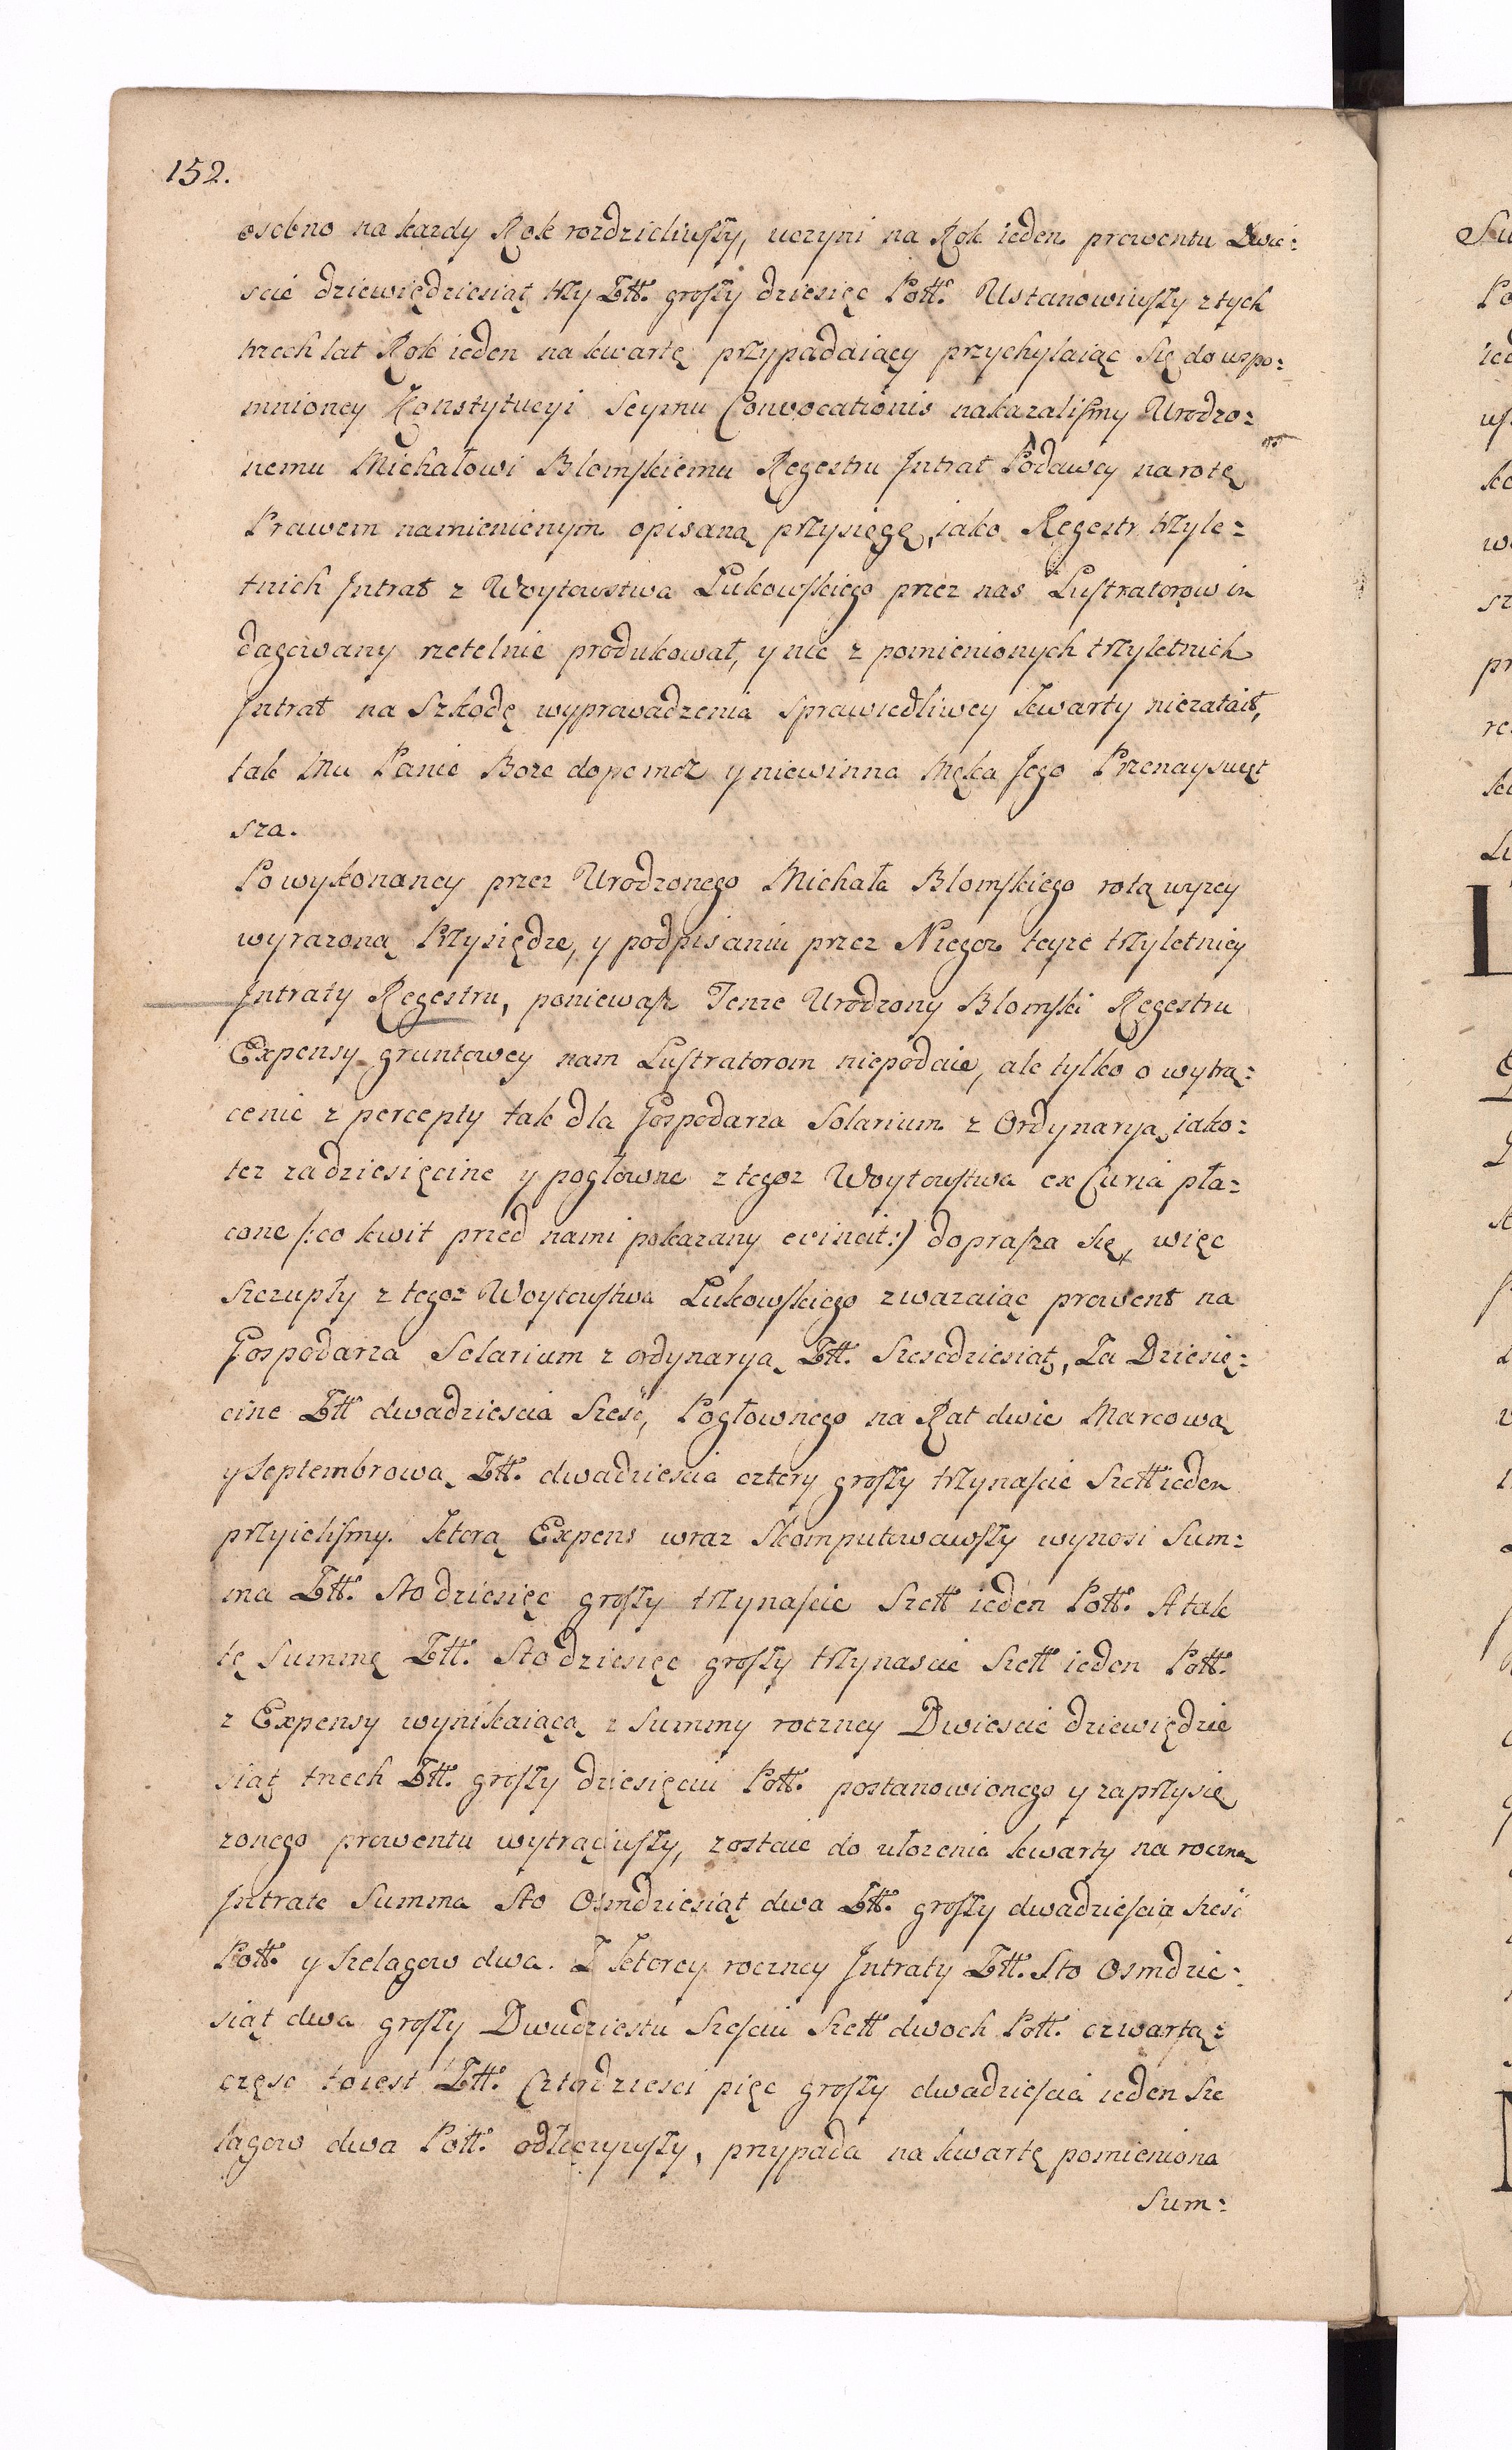 152.
osobno na kazdy Rok rozdzieliwszy, uczyni na Rok ieden prowentu Dwie:
scie dziewiędziesiąt trzy Złł. groszy dziesięc Poll. Ustanowiwszy z tych
trzech lat Rok ieden na kwartę przypadaiący przychylaiąc się do wspo:
mnioney Konstytucyi Seymu Convocationis nakazalismy Urodzo:
nemu Michałowi Blomskiemu Regestru Jntrat Podawcy na rotę
Prawem namienienym opisaną przysięgę, iako Regestr trzyle:
tnich Jntrat z Woytowstwa Łukowskiego przez nas Lustratorow in
dagowany rzetelnie produkował, y nic z pomienionych trzyletnich
Jntrat na Szkodę wyprowadzenia sprawiedliwey kwarty niezataił,
tak Mu Panie Boze dopomoz y niewinna Męka Jego Przenayswięt
sza.
Po wykonaney przez Urodzonego Michała Blomskiego rotą wyzey
wyrazoną Przysiędze, y podpisaniu przez Niegoz teyze trzyletniey
Jntraty Regestru, poniewasz Tenze Urodzony Blomski Regestru
Expensy gruntowey nam Lustratorom niepodaie, ale tylko o wytrą:
cenie z percepty tak dla Gospodarza Solarium z Ordynaryą, iako:
tez za dziesięcine y pogłowne z tegoz Woytowstwa ex Curia pła:
cone /: co kwit przed nami pokazany evincit :/ doprasza się, więc
szczupły z tegoz Woytowstwa Łukowskiego zwazaiąc prowent na
Gospodarza Solarium z ordynaryą Złł. Szescdziesiąt, Za Dziesię:
cine Złł dwadziescia szesc, Pogłownego na Rat dwie Marcową
y Septembrową Złł. dwadziescia cztery groszy trzynascie Szell ieden
przyielismy. Ktorą Expens wraz skomputowawszy wynosi Sum:
ma Złł. Sto dziesięc groszy trzynascie Szell ieden Poll. A tak
tę Summę Złł. Sto dziesięc groszy trzynascie Szell ieden Poll.
z Expensy wynikaiącą z Summy roczney Dwiescie dziewiędzie
siąt trzech Złł. groszy dziesięciu Poll. postanowionego y zaprzysię
zonego prowentu wytrąciwszy, zostaie do ułozenia kwarty na roczną
Jntrate Summa Sto Osmdziesiąt dwa Złł. groszy dwadziescia szesc
Poll. y szelagow dwa. Z Ktorey roczney Jntraty Złł. Sto Osmdzie:
siąt dwa groszy Dwudziestu Szesciu Szell dwoch Poll. czwartą:
częsc toiest Złł. Cztedziesci pięc groszy dwadziescia ieden Sze
lagow dwa Poll. odłączywszy, przypada na kwartę pomieniona
Sum: